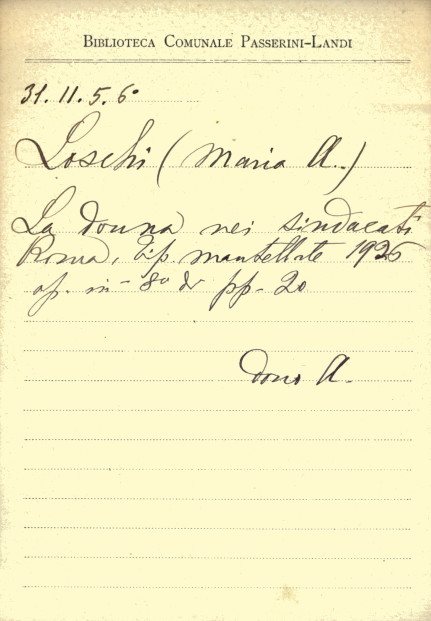 BIBLIOTECA COMUNALE PASSERINI-LANDI
31.11.5.6°
Loschi (Maria A.)
La donna nei sindacati
Roma, tip. mantellate 1926
op. in-8° di pp. 20
dono A.